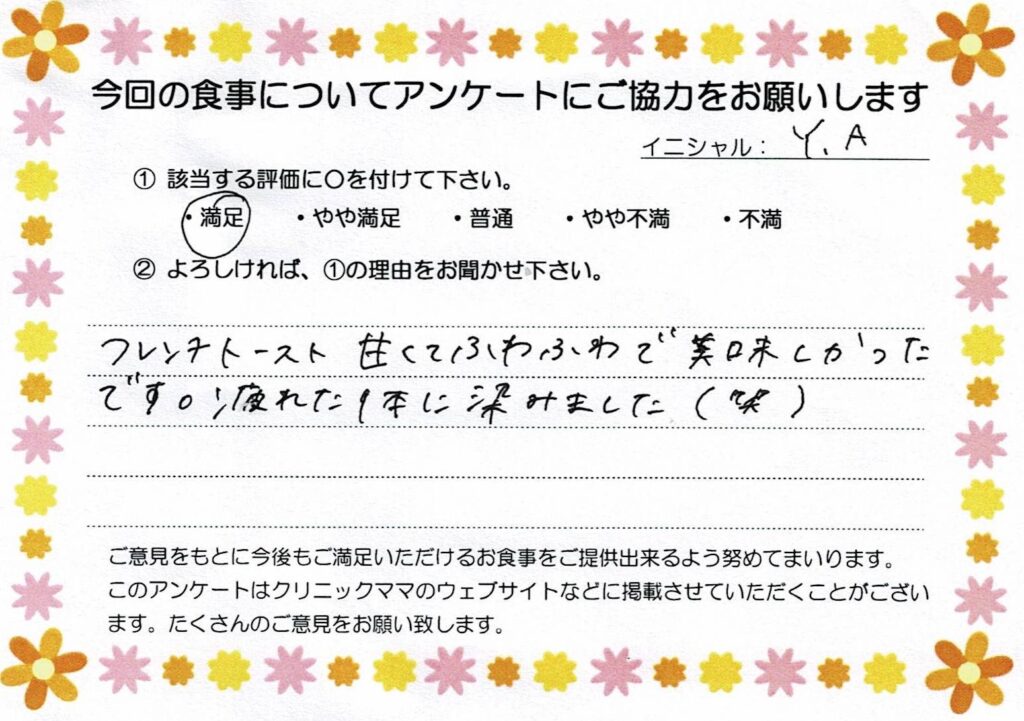 今回の食事についてアンケートにご協力をお願いします
イニシャル： Y. A
① 該当する評価に〇を付けて下さい。
・満足 ・やや満足 ・普通 ・やや不満 ・不満
② よろしければ、①の理由をお聞かせ下さい。
フレンチトースト 甘くてふわふわで美味しかった
です。疲れた体に染みました（笑）
ご意見をもとに今後もご満足いただけるお食事をご提供出来るよう努めてまいります。
このアンケートはクリニックママのウェブサイトなどに掲載させていただくことがござい
ます。たくさんのご意見をお願い致します。